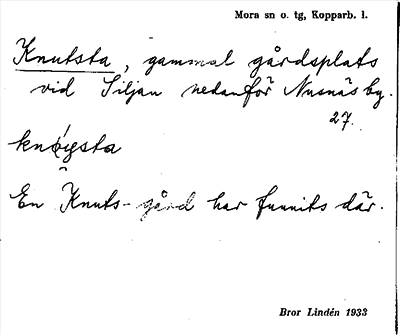 Mora sn o. tg, Kopparb. l.
Knutsta, gammal gårdsplats
vid Siljan nedanför Nusnäs by.
27.
En Knuts-gård har funnits där.
Bror Lindén 1933